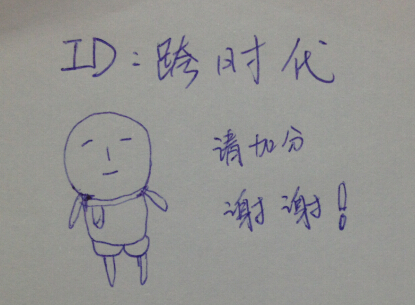 ID:跨时代
请加分
谢谢!